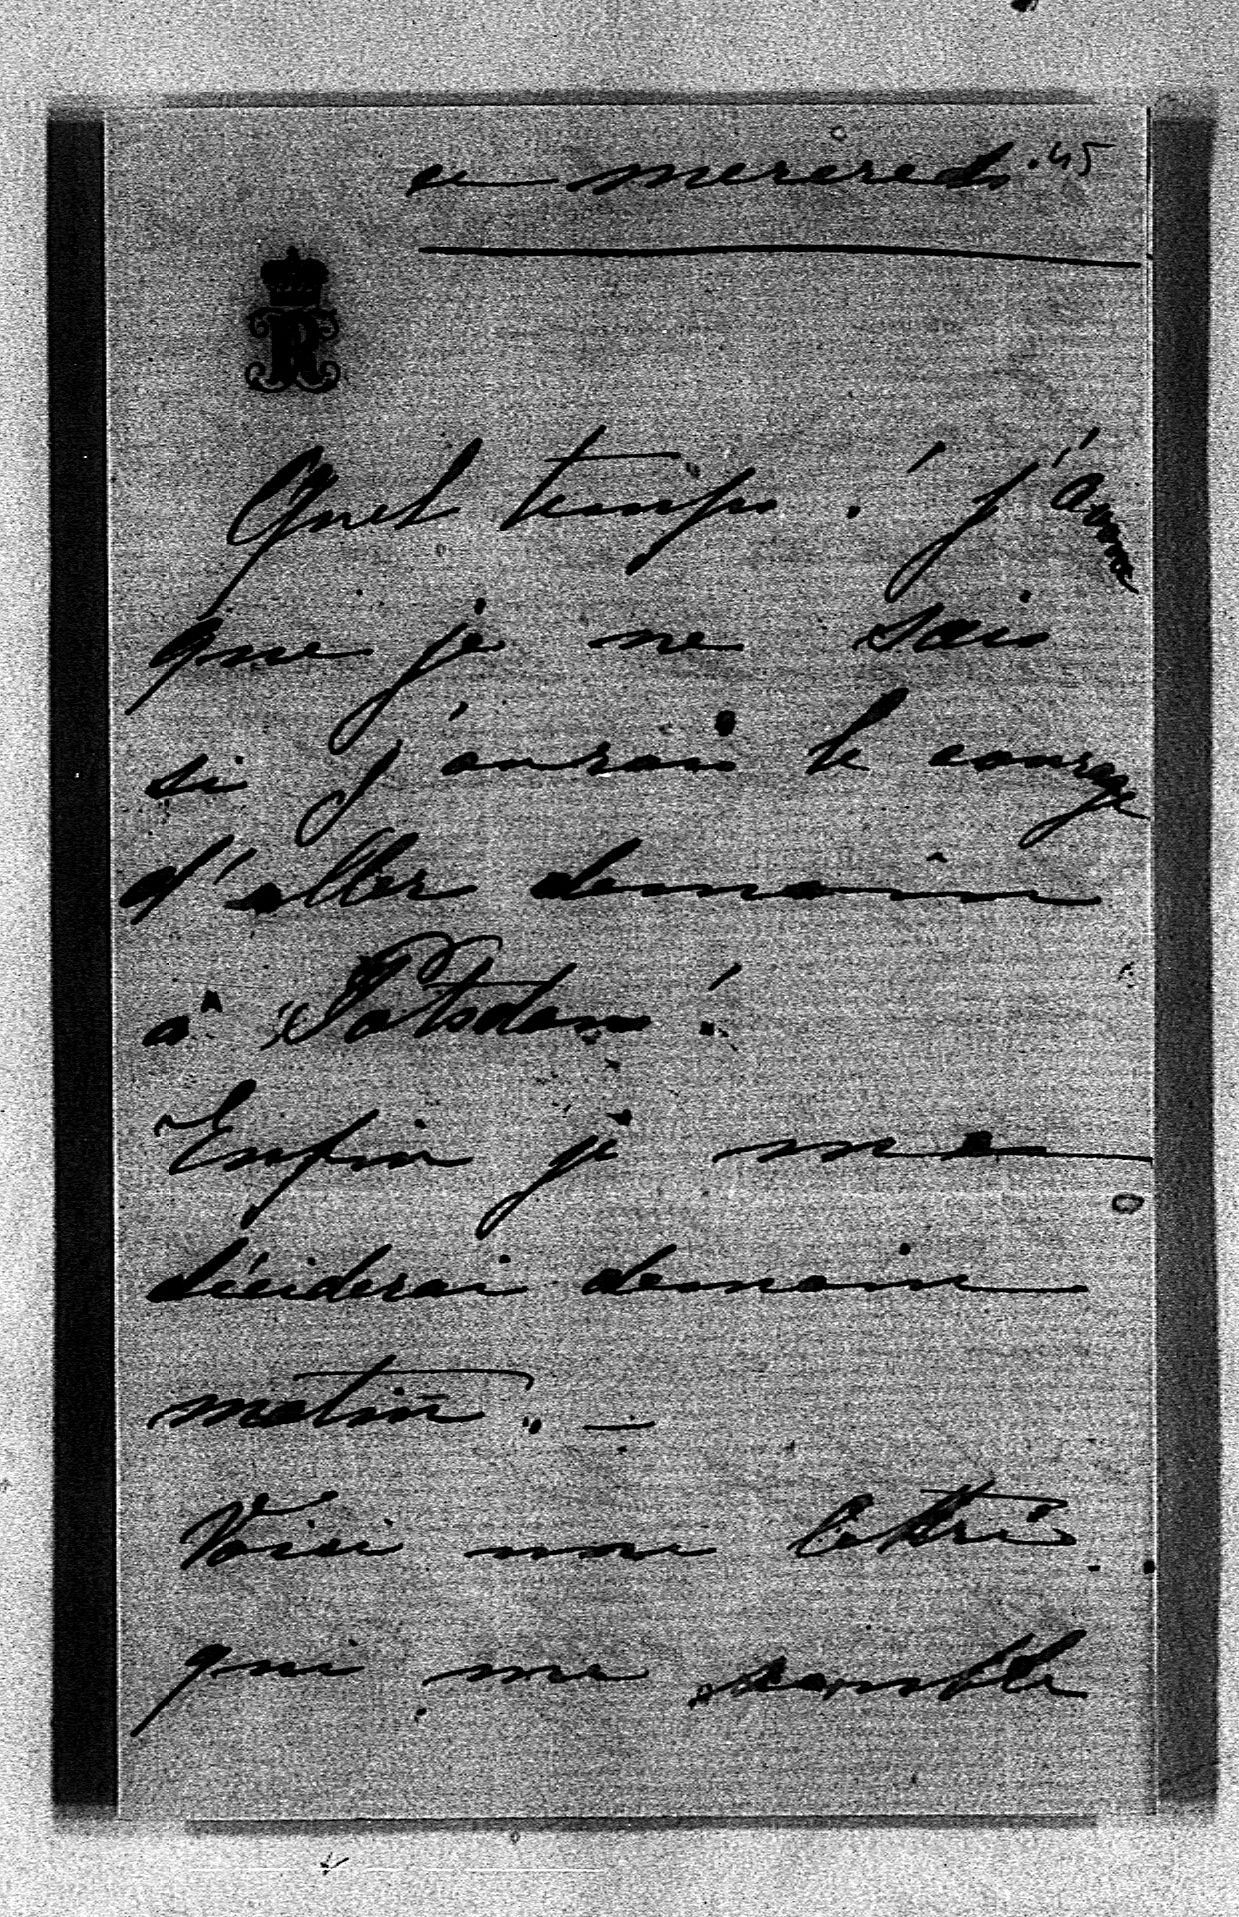 ce mercredi. 45
R
Quel temps! j'avoue
que je ne sais
si j'aurais le courage
d'aller demain
à Potsdam!
Enfin je me
déciderai demain
matin. —
Voici une lettre
qui me semble